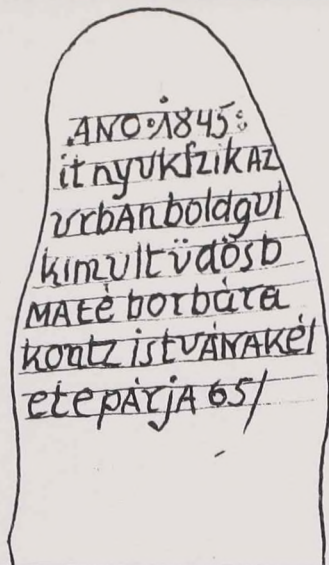 ANO·1845:
itnyUKſzikAZ
UrbAnboldgUl
kimUltüdősb
MAtéborbára
kontzistvÁNAkél
etepÁrjA 65/